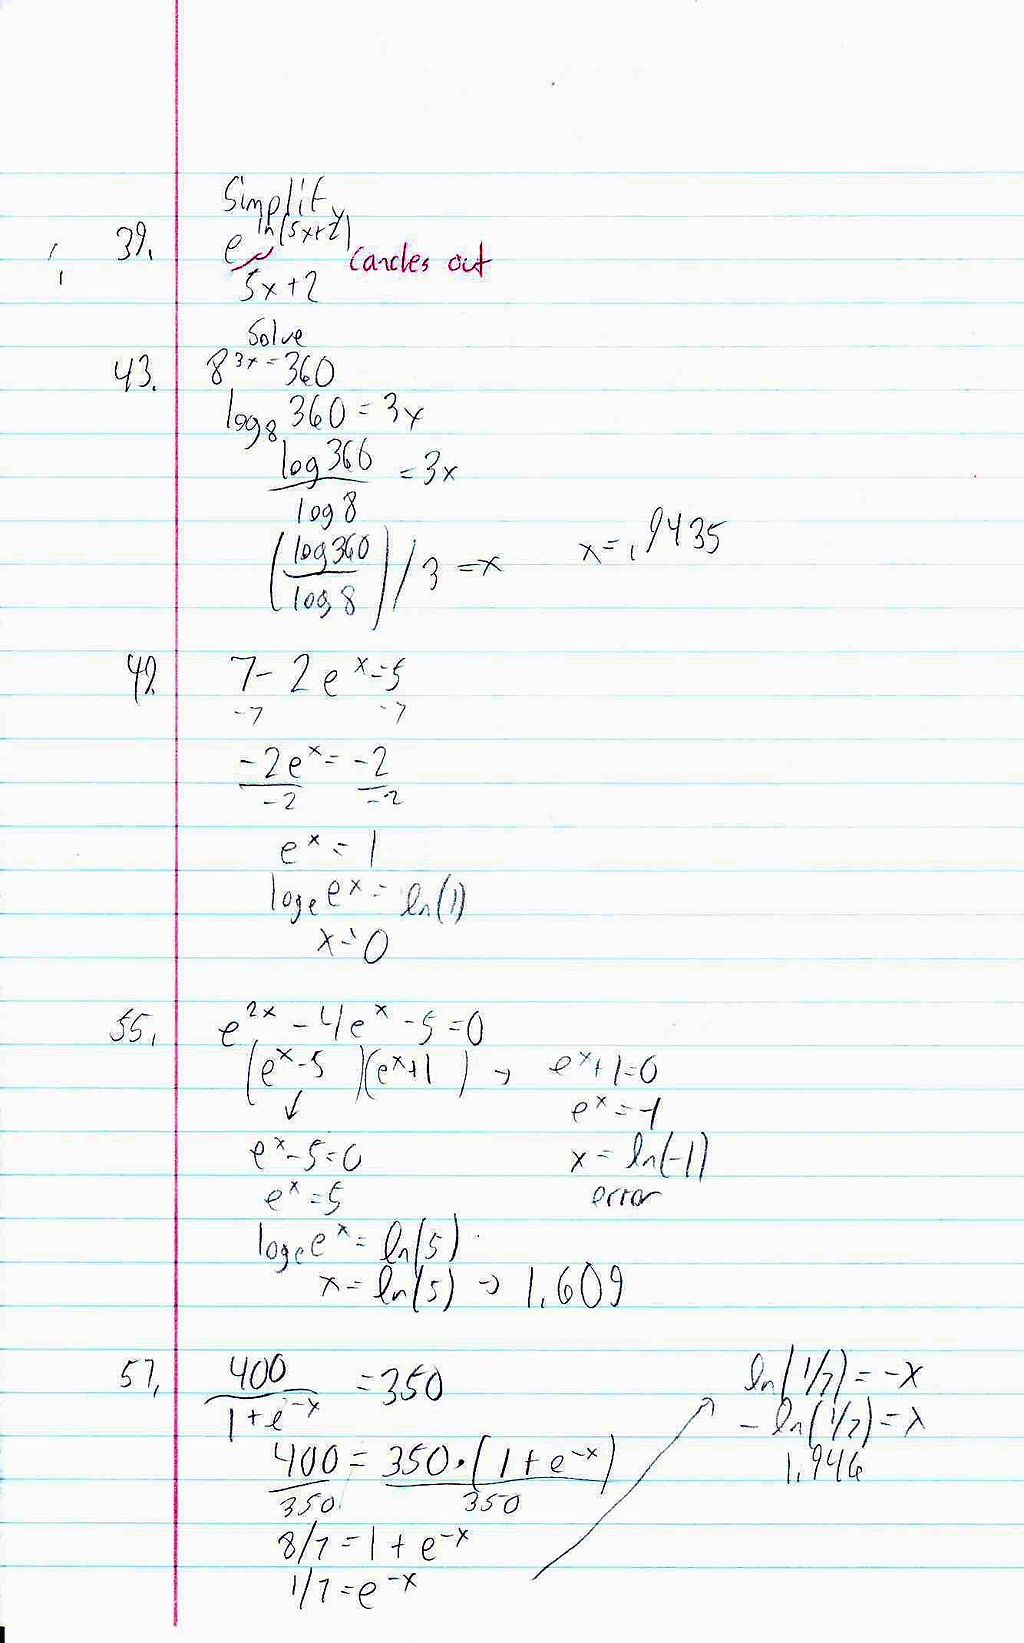 Simplify
39. e^ln(5x+2) Cancles out
5x+2
Solve
43. 8^3x = 360
log₈ 360 = 3x
log 360 / log 8 = 3x
(log 360 / log 8) / 3 = x x = .9435
49 7 - 2e^x = 5
-7 -7
-2e^x / -2 = -2 / -2
e^x = 1
logₑ e^x = ln(1)
x = 0
55. e^2x - 4e^x - 5 = 0
(e^x - 5)(e^x + 1) → e^x + 1 = 0
↓ e^x = -1
e^x - 5 = 0 x = ln(-1)
e^x = 5 error
logₑ e^x = ln(5)
x = ln(5) → 1.609
57. 400 / 1 + e^-x = 350
400 / 350 = 350 · (1 + e^-x) / 350
8/7 = 1 + e^-x
1/7 = e^-x
ln(1/7) = -x
- ln(1/7) = x
1.946